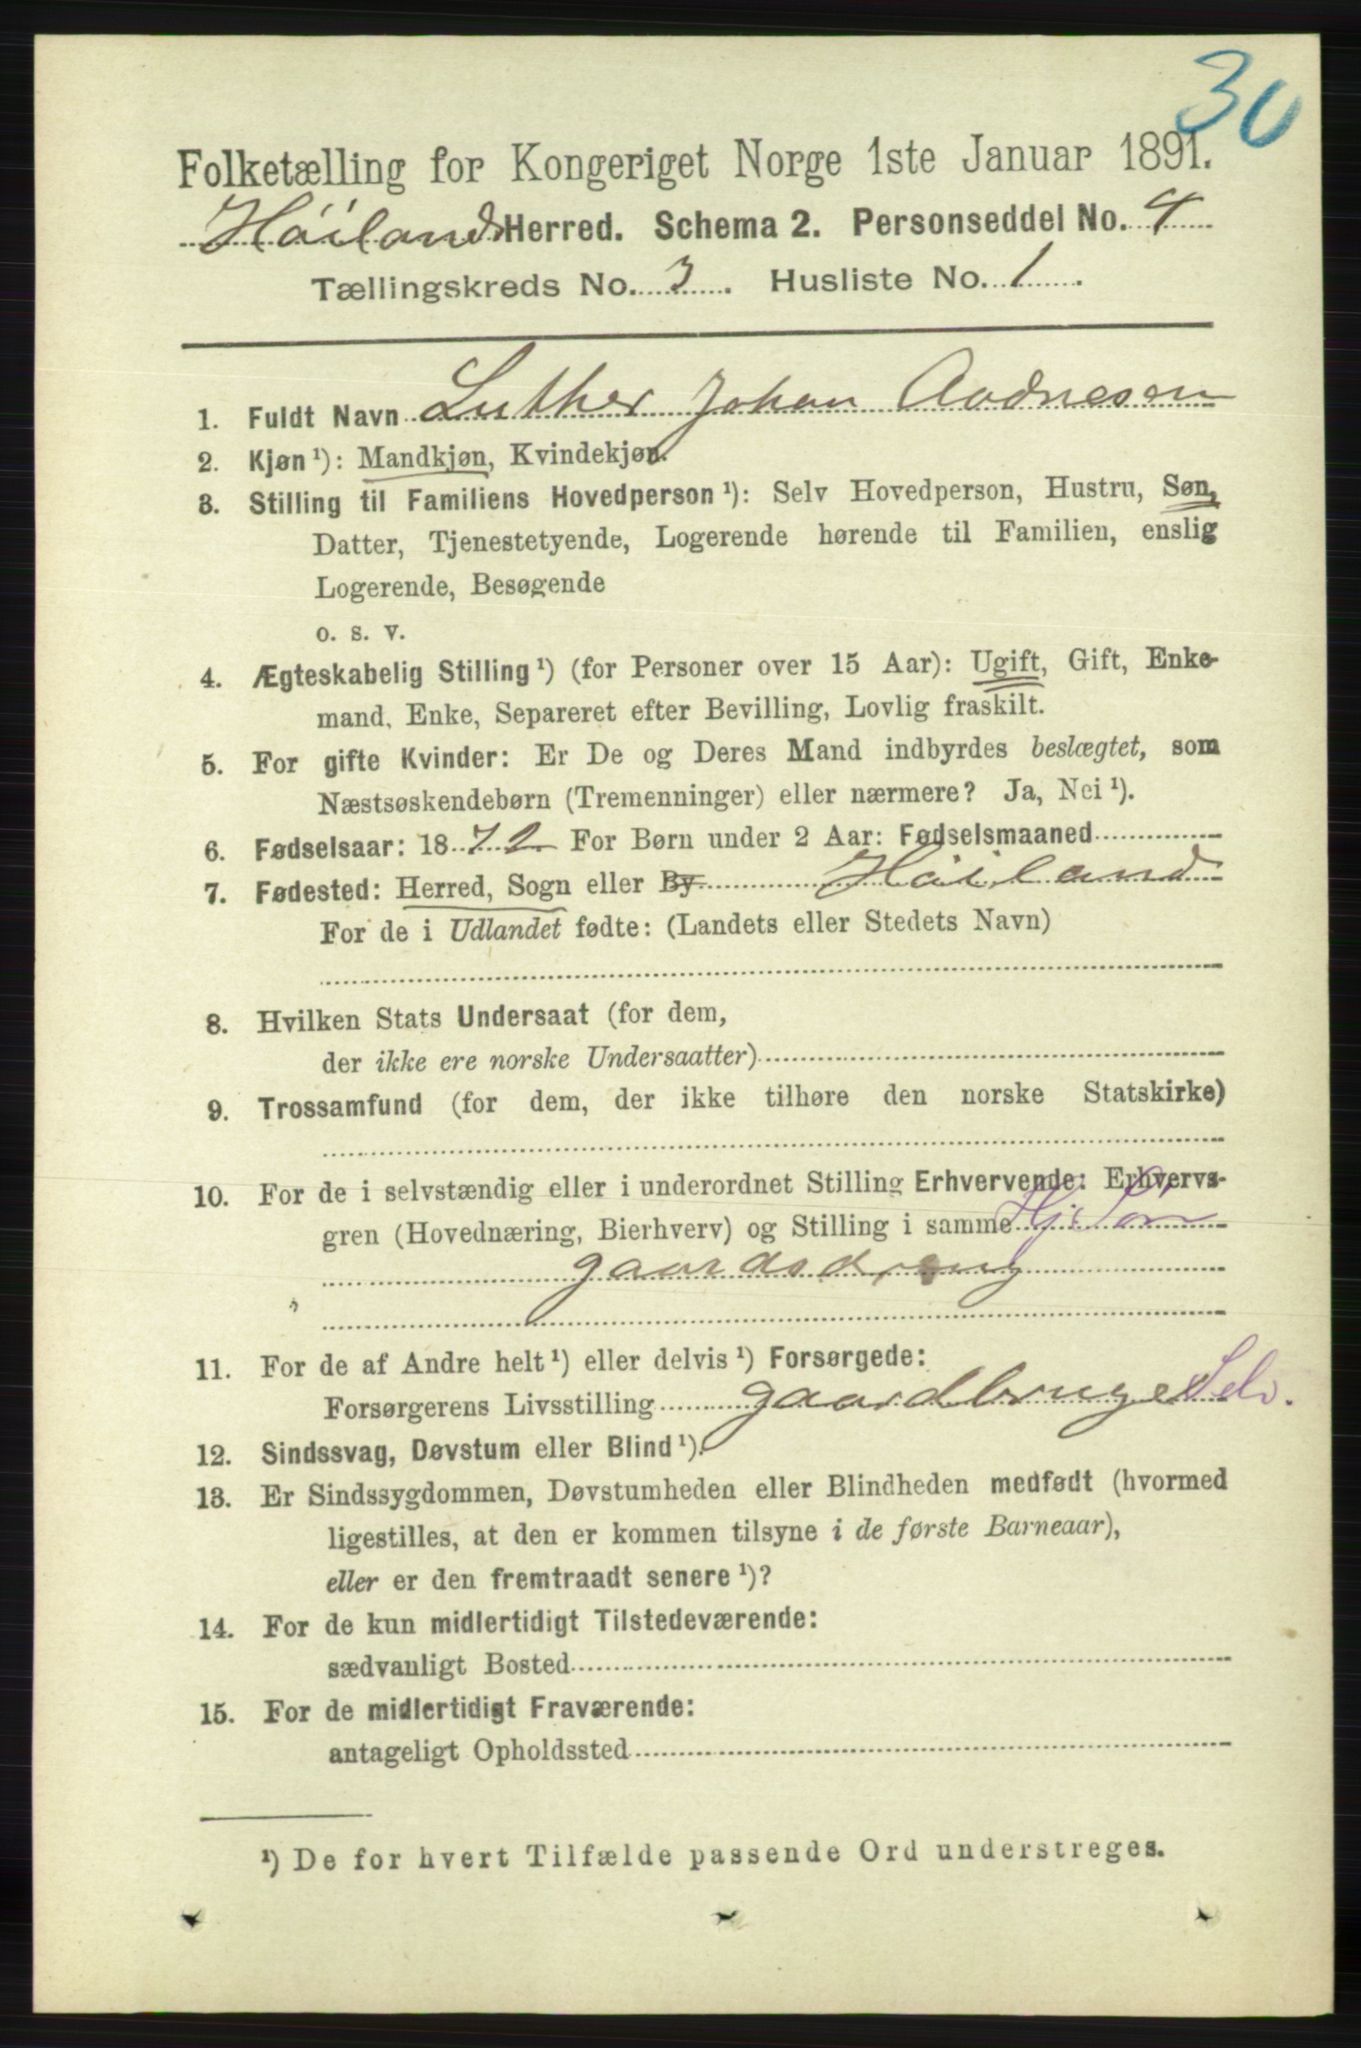 30
Folketælling for Kongeriget Norge 1ste Januar 1891.
Höilands Herred. Schema 2. Personseddel No. 4
Tællingskreds No. 3. Husliste No. 1.
1. Fuldt Navn Luther Johan Aadnesen
2. Kjøn ¹): Mandkjøn, Kvindekjøn.
3. Stilling til Familiens Hovedperson ¹): Selv Hovedperson, Hustru, Søn,
Datter, Tjenestetyende, Logerende hørende til Familien, enslig
Logerende, Besøgende
o. s. v.
4. Ægteskabelig Stilling ¹) (for Personer over 15 Aar): Ugift, Gift, Enke-
mand, Enke, Separeret efter Bevilling, Lovlig fraskilt.
5. For gifte Kvinder: Er De og Deres Mand indbyrdes beslægtet, som
Næstsøskendebørn (Tremenninger) eller nærmere? Ja, Nei ¹).
6. Fødselsaar: 1872 For Børn under 2 Aar: Fødselsmaaned
7. Fødested: Herred, Sogn eller By Höiland
For de i Udlandet fødte: (Landets eller Stedets Navn)
8. Hvilken Stats Undersaat (for dem,
der ikke ere norske Undersaatter)
9. Trossamfund (for dem, der ikke tilhøre den norske Statskirke)
10. For de i selvstændig eller i underordnet Stilling Erhvervende: Erhvervs-
gren (Hovednæring, Bierhverv) og Stilling i samme Hj. Søn
gaardsdreng
11. For de af Andre helt ¹) eller delvis ¹) Forsørgede:
Forsørgerens Livsstilling gaardbruger Selv.
12. Sindssvag, Døvstum eller Blind ¹).
13. Er Sindssygdommen, Døvstumheden eller Blindheden medfødt (hvormed
ligestilles, at den er kommen tilsyne i de første Barneaar),
eller er den fremtraadt senere ¹)?
14. For de kun midlertidigt Tilstedeværende:
sædvanligt Bosted
15. For de midlertidigt Fraværende:
antageligt Opholdssted
¹) De for hvert Tilfælde passende Ord understreges.